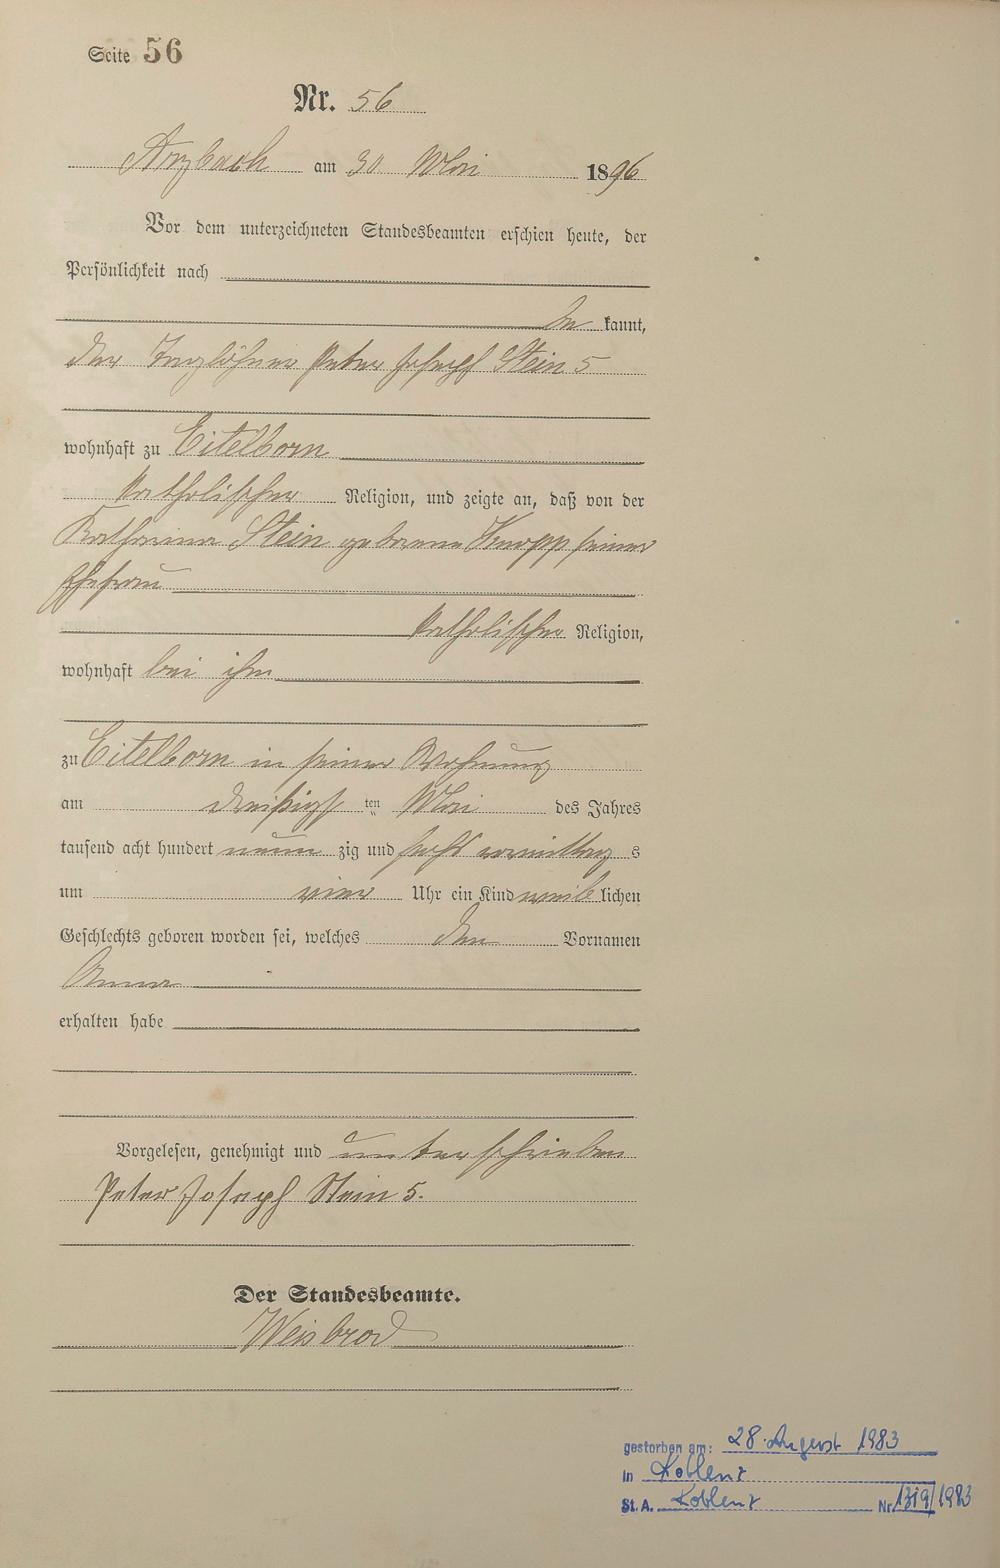 Seite 56
Nr. 56
Arzbach am 30 Mai 1896
Vor dem unterzeichneten Standesbeamten erschien heute, der
Persönlichkeit nach
be kannt,
der Taglöhner Peter Joseph Stein 5
wohnhaft zu Eitelborn
katholischer Religion, und zeigte an, daß von der
Katharina Stein geborene Knopp seiner
Ehefrau
katholischer Religion,
wohnhaft bei ihm
zu Eitelborn in seiner Wohnung
am dreißigs ten Mai des Jahres
tausend acht hundert neun zig und sechs vormittag s
um vier Uhr ein Kind weib lichen
Geschlechts geboren worden sei, welches den Vornamen
Anna
erhalten habe
Vorgelesen, genehmigt und unterschrieben
Peter Joseph Stein 5.
Der Standesbeamte.
Weisbrod
gestorben am: 28. August 1983
in Koblenz
St. A. Koblenz Nr. 1319/1983